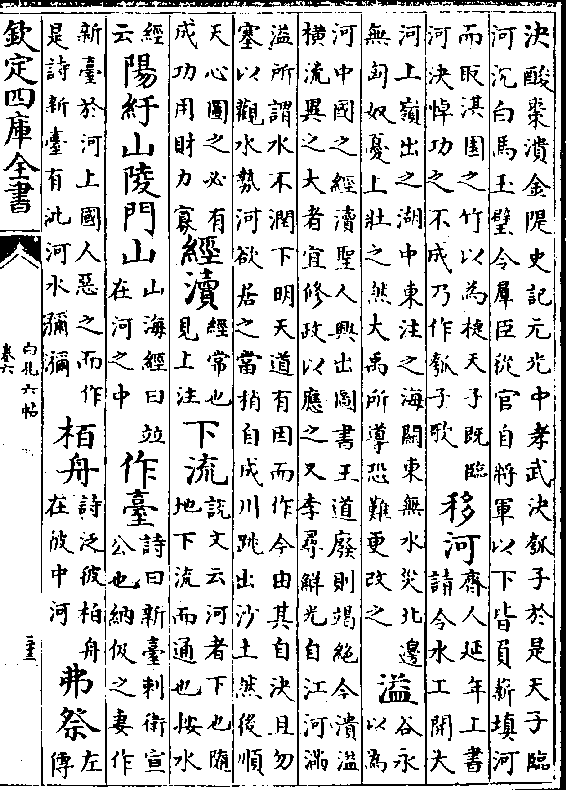 決酸棗潰金隄史記元光中孝武決瓠子於是天子臨
河沉白馬玉璧令羣臣從官自將軍以下皆負薪填河
而取淇園之竹以為楗天子既臨
河決悼功之不成乃作瓠子歌
移河
齊人延年上書
請令水工開大
河上嶺出之湖中東注之海關東無水災北邊
無匈奴憂上壯之然大禹所導恐難更改之
溢
谷永
以為
河中國之經瀆聖人興出圖書王道廢則竭絕今潰溢
橫流異之大者宜修政以應之又李尋解光自江河滿
溢所謂水不潤下明天道有因而作今由其自決且勿
塞以觀水勢河欲居之當稍自成川跳出沙土然後順
天心圖之必有
成功用財力寡
經瀆
經常也
見上注
下流
說文云河者下也隨
地下流而通也按水
經
云
陽紆山陵門山
山海經曰並
在河之中
作臺
詩曰新臺刺衛宣
公也納伋之妻作
新臺於河上國人惡之而作
是詩新臺有泚河水瀰瀰
栢舟
詩泛彼柏舟
在彼中河
弗祭
左
傳
欽定四庫全書
白孔六帖
卷六